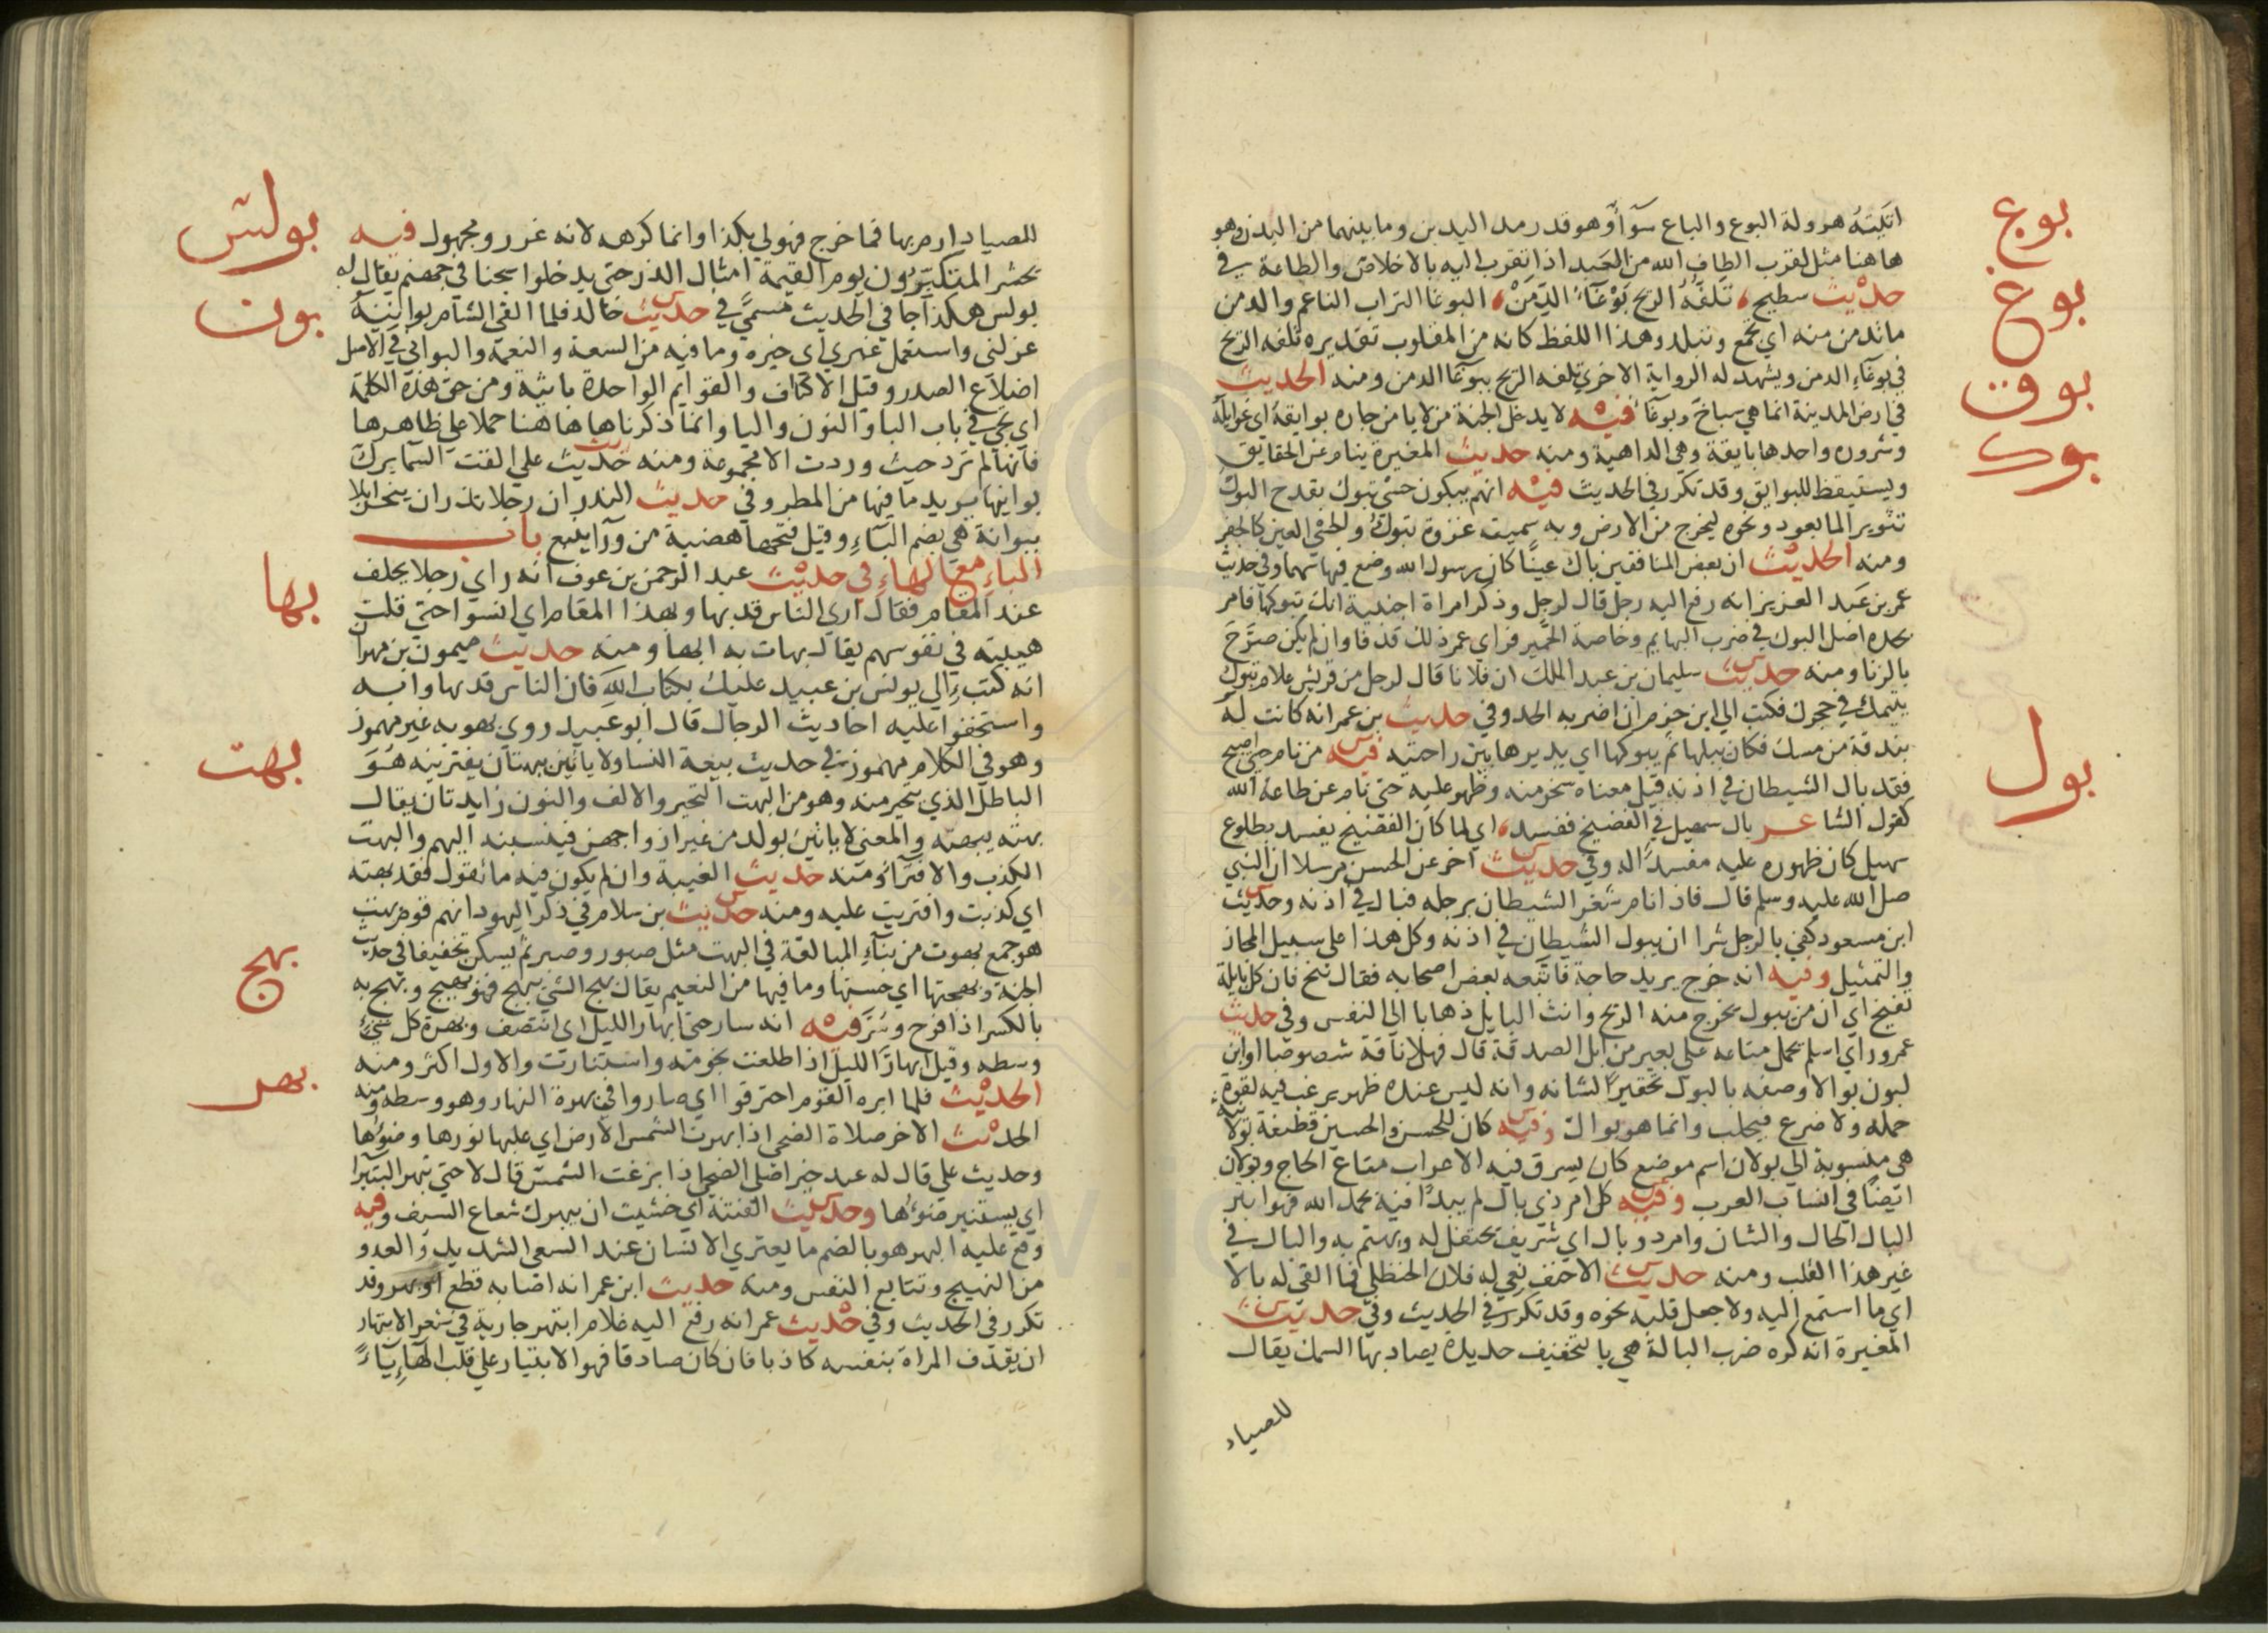 بوع
اتيته هرولة البوع والباع سوآء وهو قدر مد اليدين وما بينهما من البدن وهو
هاهنا مثل لقرب الطاف الله من العبد اذا تقرب اليه بالاخلاص والطاعة في
بوغ
حديث سطيح، تلفه الريح بوغآء الدمن، البوغا التراب الناعم والدمن
ما تدمن منه اي تجمع وتلبد وهذا اللفظ كانه من المقلوب تقديره تلفه الريح
في بوغاء الدمن ويشهد له الرواية الاخري تلفه الريح ببوغا الدمن ومنه الحديث
بوق
في ارض المدينة انما هي سباخ وبوغآء فيه لا يدخل الجنة من لا يامن جاره بوايقه اي غوايله
وشروره واحدها بايقة وهي الداهية ومنه حديث المغيرة ينام عن الحقايق
بوك
ويستيقظ للبوايق وقد تكرر في الحديث فيه انهم يبكون حسي تبوك بقدح البوك
تثوير الما بعود ونحوه ليخرج من الارض وبه سميت غزوة تبوك والحسي العين كالحفر
ومنه الحديث ان بعض المنافقين باك عينا كان رسول الله وضع فيها سهما وفي حديث
عمر بن عبد العزيز انه رفع اليه رجل قال لرجل وذكر امراة اجنبية انك تبوكها فامر
بحده اصل البوك في ضرب البهايم وخاصة الحمير فراي عمر ذلك قذفا وان لم يكن صرح
بالزنا ومنه حديث سليمان بن عبد الملك ان فلانا قال لرجل من قريش علام تبوك
يتيمك في حجرك فكتب الي ابن حزم ان اضربه الحد وفي حديث بن عمر انه كانت له
بول
بندقة من مسك فكان يبلها ثم يبوكها اي يديرها بين راحتيه فيه من نام حتي اصبح
فقد بال الشيطان في اذنه قيل معناه سخر منه وظهر عليه حتي نام عن طاعة الله
كقول الشاعر بال سهيل في الفضيخ ففسد، اي لما كان الفضيخ يفسد بطلوع
سهيل كان ظهوره عليه مفسدا له وفي حديث اخر عن الحسن مرسلا ان النبي
صل الله عليه وسلم قال فاذا نام شغر الشيطان برجله فبال في اذنه وحديث
ابن مسعود كفي بالرجل شرا ان يبول الشيطان في اذنه وكل هذا علي سبيل المجاز
والتمثيل وفيه انه خرج يريد حاجة فاتبعه بعض اصحابه فقال تنح فان كل بايلة
تفيح اي ان من يبول يخرج منه الريح وانث البايل ذهابا الي النفس وفي حديث
عمر وراي اسلم يحمل متاعه علي بعير من ابل الصدقة قال فهلا ناقة شصوصا او ابن
لبون بوالا وصفه بالبول تحقيرا لشانه وانه ليس عنده ظهر يرغب فيه لقوة
حمله ولا ضرع فيحلب وانما هو بوال وفيه كان للحسن والحسين قطيفة بولانية
هي منسوبة الي بولان اسم موضع كان يسرق فيه الاعراب متاع الحاج وبولان
ايضا في انساب العرب وفيه كل امر ذي بال لم يبدا فيه بحمد الله فهو ابتر
البال الحال والشان وامر ذو بال اي شريف يحتفل له ويهتم به والبال في
غير هذا القلب ومنه حديث الاحنف نعي له فلان الحنظلي فما القي له بالا
اي ما استمع اليه ولا جعل قلبه نحوه وقد تكرر في الحديث وفي حديث
المغيرة انه كره ضرب البالة هي بالتخفيف حديدة يصاد بها السمك يقال
للصياد
بولش
للصياد ارم بها فما خرج فهو لي بكذا وانما كرهه لانه غرر ومجهول فيه
يحشر المتكبرون يوم القيمة امثال الذر حتي يدخلوا سجنا في جهنم يقال له
بون
بولس هكذا جا في الحديث مسمي في حديث خالد فلما القي الشام بوانيه
عزلني واستعمل غيري اي خيره وما فيه من السعة والنعمة والبواني في الاصل
اضلاع الصدر وقيل الاكتاف والقوايم الواحدة بانية ومن حق هذه الكلمة
ان يجي في باب البا والنون واليا وانما ذكرناها هاهنا حملا علي ظاهرها
فانها لم ترد حيث وردت الا مجموعة ومنه حديث علي القت السما برك
بوانيها يريد ما فيها من المطر وفي حديث النذر ان رجلا نذر ان ينحر ابلا
ببوانة هي بضم الباء وقيل فتحها هضبة من ورآ ينبع باب
بها
الباء مع الهاء في حديث عبد الرحمن بن عوف انه راي رجلا يحلف
عند المقام فقال اري الناس قد بهاوا بهذا المقام اي انسوا حتي قلت
هيبته في نفوسهم يقال بهات به ابها ومنه حديث ميمون بن مهران
انه كتب الي يونس بن عبيد عليك بكتاب الله فان الناس قد بهاوا به
واستخفوا عليه احاديث الرجال قال ابو عبيد روي بهو به غير مهموز
بهت
وهو في الكلام مهموز في حديث بيعة النسا ولا ياتين ببهتان يفترينه هو
الباطل الذي يتحير منه وهو من البهت التحير والالف والنون زايدتان يقال
بهته يبهته والمعني لا ياتين بولد من غير ازواجهن فينسبنه اليهم والبهت
الكذب والافترآء ومنه حديث الغيبة وان لم يكون فيه ما تقول فقد بهته
اي كذبت وافتريت عليه ومنه حديث بن سلام في ذكر اليهود انهم قوم بهت
بهج
هو جمع بهوت من بنآء المبالغة في البهت مثل صبور وصبر ثم يسكن تخفيفا في حديث
الجنة وبهجتها اي حسنها وما فيها من النعيم يقال بهج الشي يبهج فهو بهيج وبهج به
بهر
بالكسر اذا فرح وسر فيه انه سار حتي ابهار الليل اي انتصف وبهرة كل شيء
وسطه وقيل ابهار الليل اذا طلعت نجومه واستنارت والاول اكثر ومنه
الحديث فلما ابره القوم احترقوا اي صاروا في بهرة النهار وهو وسطه ومنه
الحديث الاخر صلاة الضحي اذا بهرت الشمس الارض اي علبها نورها وضوءها
وحديث علي قال له عبد خير اصلي الضحي اذا بزغت الشمس قال لا حتي تبهر البتيرا
اي يستنير ضوءها وحديث الفتنة اي خشيت ان يبهرك شعاع السيف وفيه
وقع عليه البهر هو بالضم ما يعتري الانسان عند السعي الشديد والعدو
من النهيج وتتابع النفس ومنه حديث ابن عمر انه اصابه قطع او بهر وقد
تكرر في الحديث وفي حديث عمر انه رفع اليه غلام ابتهر جارية في شعر الابتهار
ان يقذف المراة بنفسه كاذبا فان كان صادقا فهو الابتيار علي قلب الهاء يآء